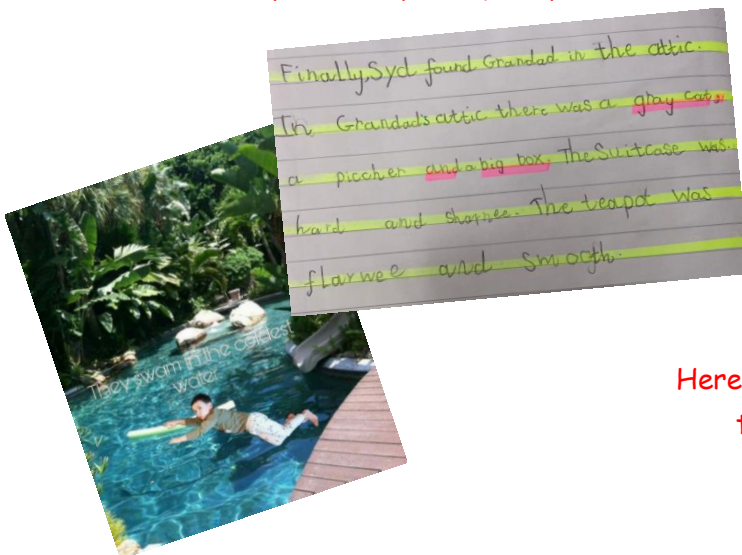 Finally, Syd found Grandad in the attic.
In Grandad's attic there was a gray cat,
a piccher and a big box. The Suitcase was
hard and sharpee. The teapot was
flarwee and smooth.
They swam in the coldest
water
Here